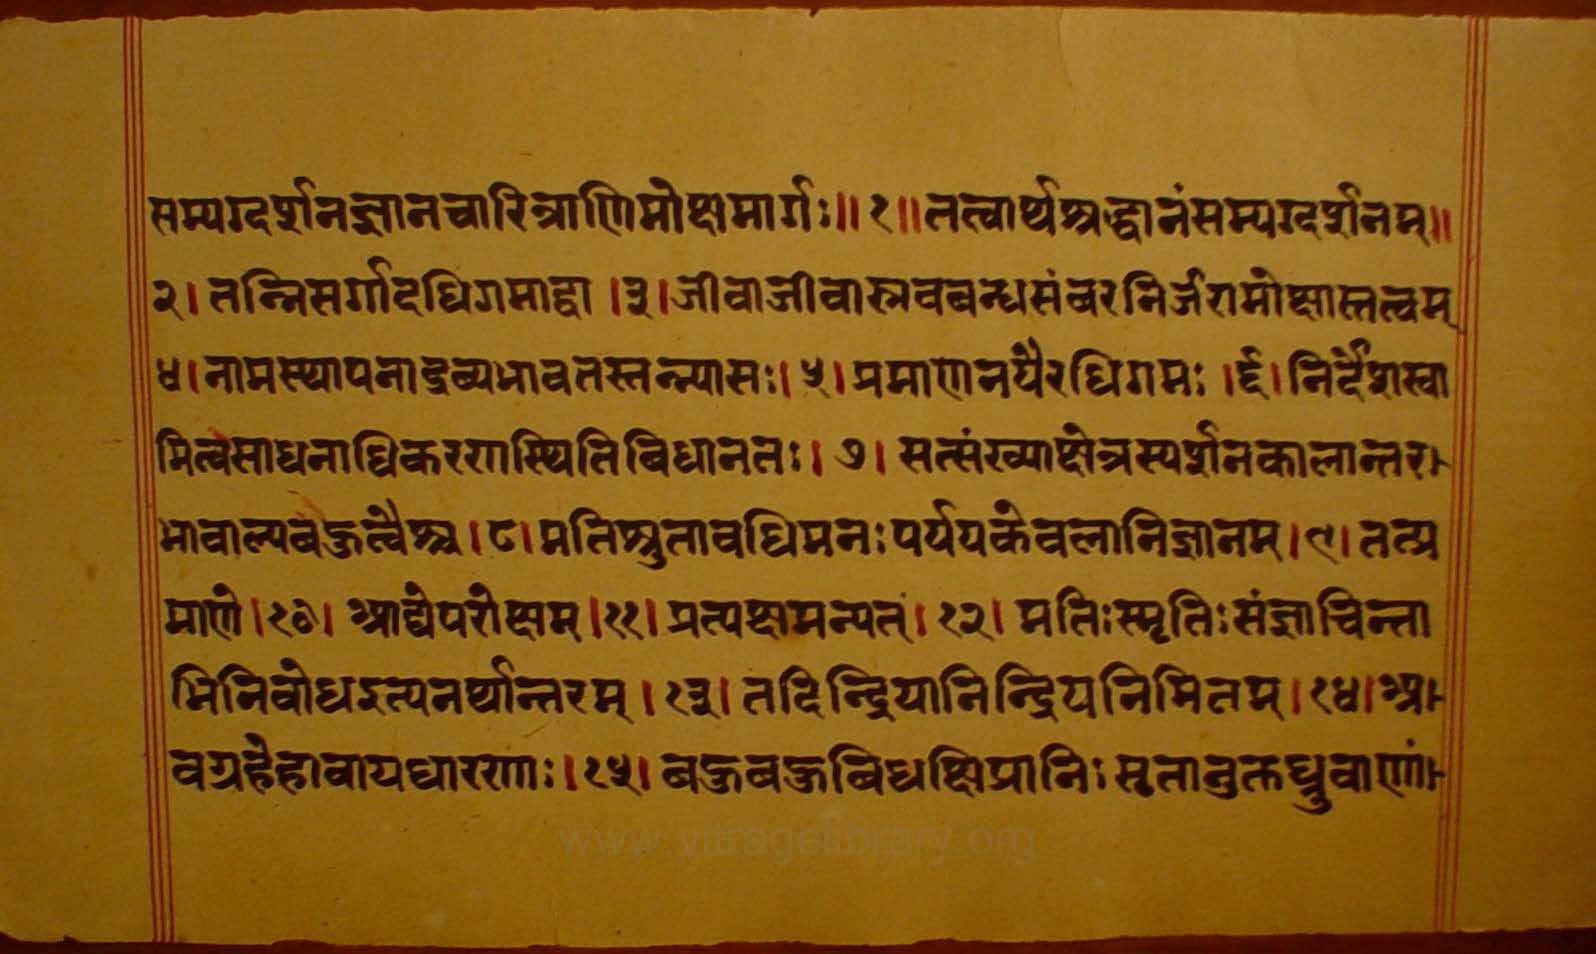 सम्यग्दर्शनज्ञानचारित्राणिमोक्षमार्गः॥ १॥ तत्वार्थश्रद्धानंसम्यग्दर्शनम्॥
२। तन्निसर्गादधिगमाद्वा ।३। जीवाजीवास्रवबन्धसंवरनिर्जरामोक्षास्तत्वम्
४। नामस्थापनाद्रव्यभावतस्तन्न्यासः। ५। प्रमाणनयैरधिगमः ।६। निर्देशस्वा
मित्वसाधनाधिकरणस्थितिविधानतः। ७। सत्संख्याक्षेत्रस्पर्शनकालान्तर-
भावाल्पबहुत्वैश्च ।८। मतिश्रुतावधिमनःपर्ययकेवलानिज्ञानम् ।९। तत्प्र
माणे ।१०। आद्येपरोक्षम् ।११। प्रत्यक्षमन्यत्। १२। मतिःस्मृतिःसंज्ञाचिन्ता
भिनिबोधइत्यनर्थान्तरम् । १३। तदिन्द्रियानिन्द्रियनिमितम् ।१४। अ-
वग्रहेहावायधारणाः ।१५। बहुबहुविधक्षिप्रानिःसृतानुक्तध्रुवाणां-
www.vitragelibrary.org